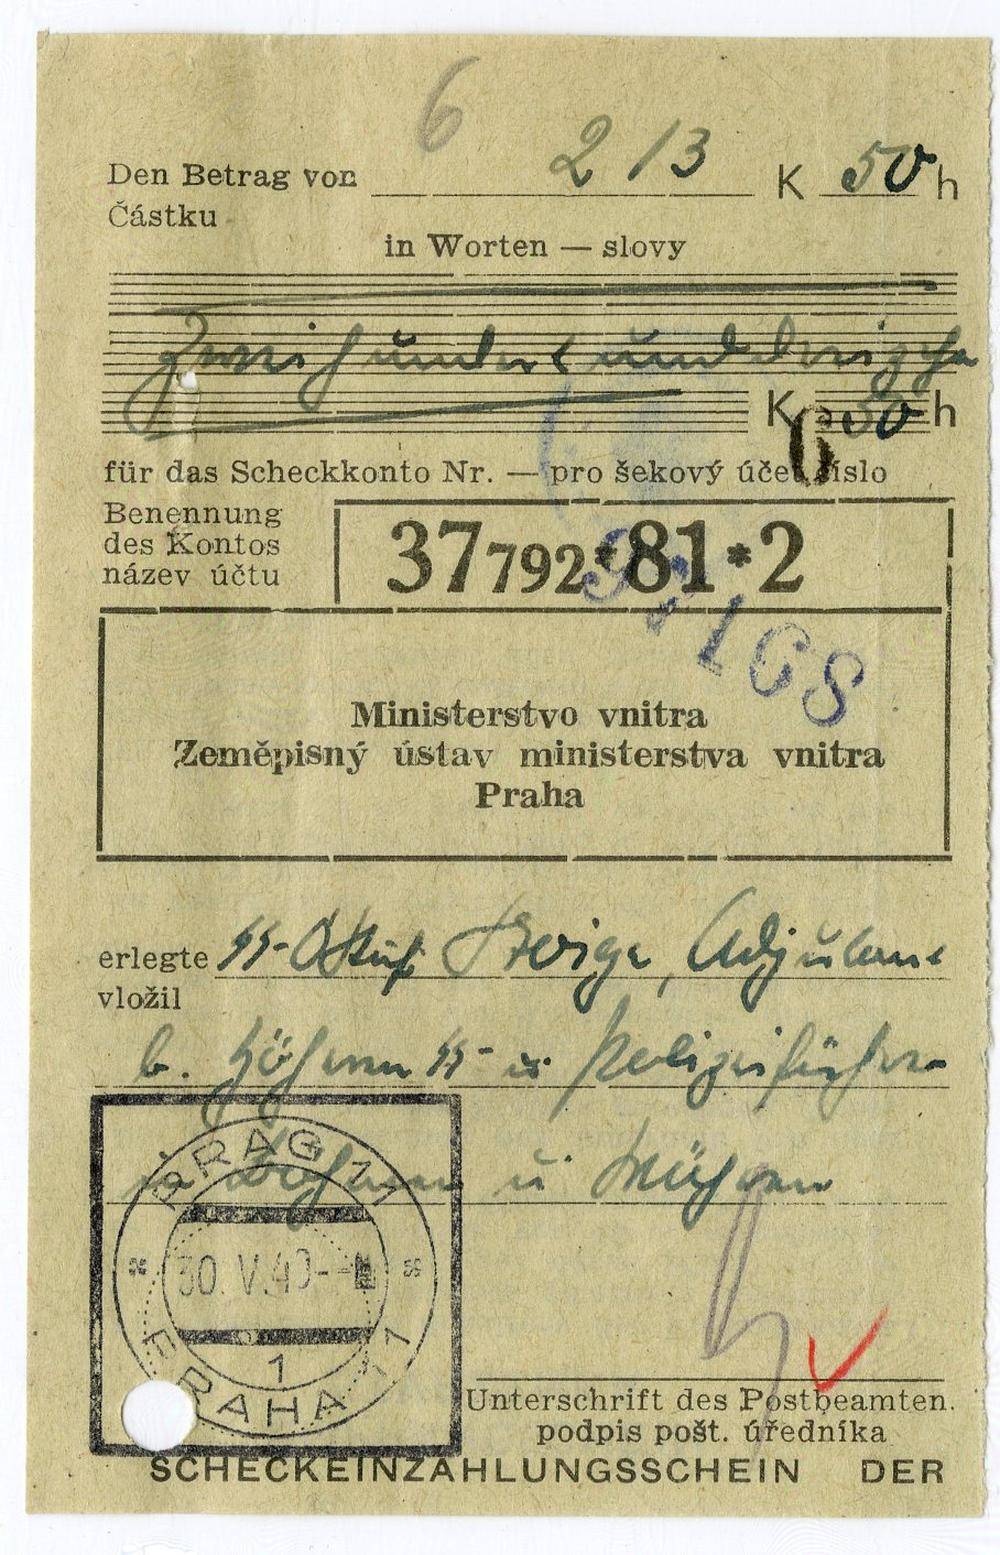 6
Den Betrag von 213 K 50 h
Částku
in Worten — slovy
Zweihundertunddreizehn
K 50 h
6
für das Scheckkonto Nr. — pro šekový účet číslo
Benennung
des Kontos
název účtu
37792*81*2
Ministerstvo vnitra
Zeměpisný ústav ministerstva vnitra
Praha
erlegte SS-OStuf , Adjutant
vložil
b. Höheren SS- u Polizeiführer
in Böhmen u Mähren
PRAG 11
30. V. 40
1
PRAHA 11
Unterschrift des Postbeamten.
podpis pošt. úředníka
SCHECKEINZAHLUNGSSCHEIN DER